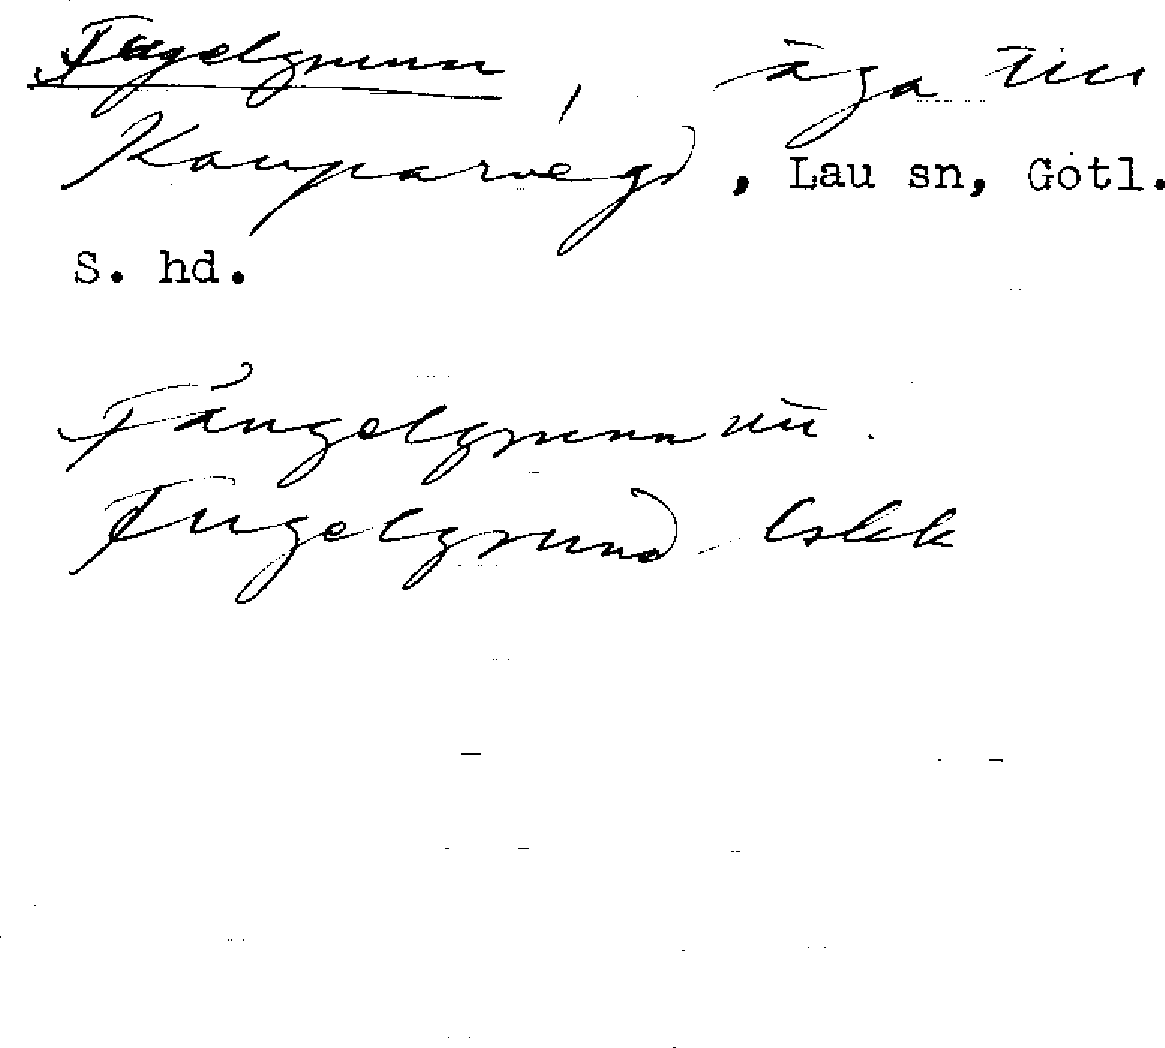 Fugelgrunn, äga till
Kauparve gd, Lau sn, Gotl.
S. hd.
Fäugelgrunn
Fugelgrund lskk